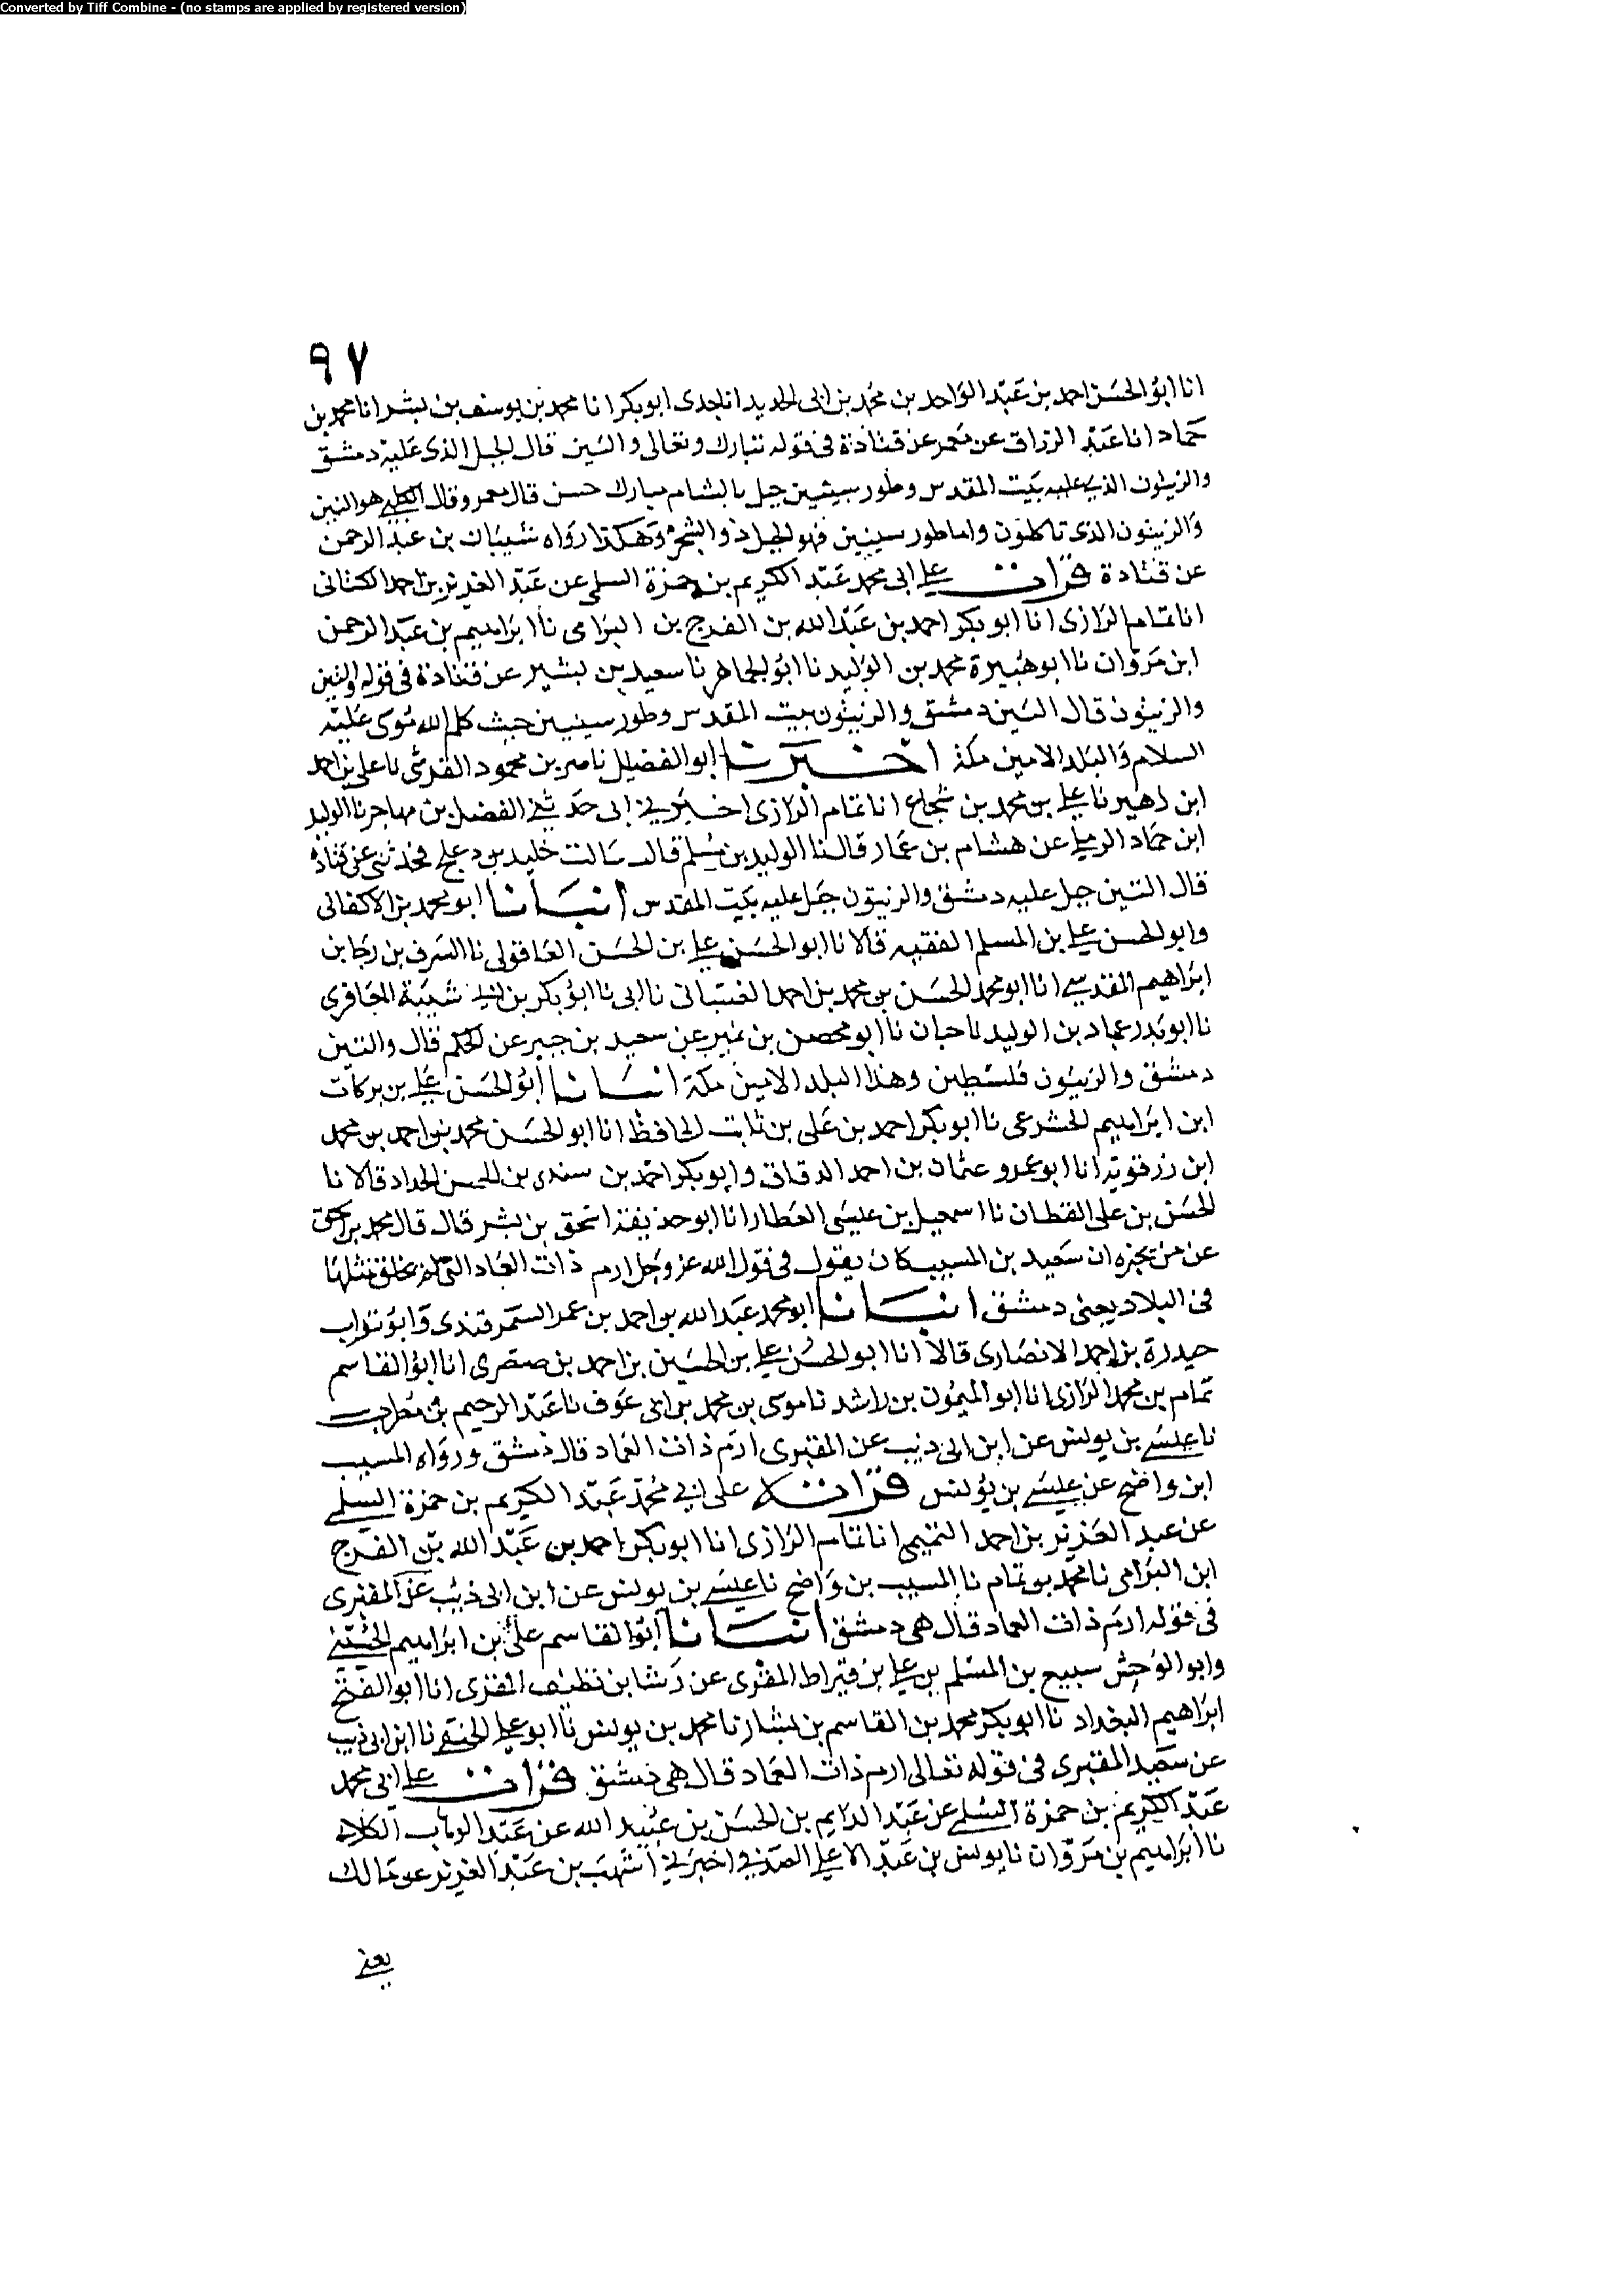 Converted by Tiff Combine - (no stamps are applied by registered version)
٩٧
انا ابو الحسن احمد بن عبد الواحد بن محمد بن ابى الحديد انا جدى ابو بكر انا محمد بن يوسف بن بشر انا محمد بن
حماد انا عبد الرزاق عن معمر عن قتادة فى قوله تبارك وتعالى والتين قال الجبل الذى عليه دمشق
والزيتون الذى عليه بيت المقدس وطور سينين جبل بالشام مبارك حسن قال معمر وقال الكلبى هو التين
والزيتون الذى تاكلون واما طور سينين فهو الجبل ذو الشجر وهكذا رواه شيبان بن عبد الرحمن
عن قتادة قرات على ابى محمد عبد الكريم بن حمزة السلمى عن عبد العزيز بن احمد الكتانى
انا تمام الرازى انا ابو بكر احمد بن عبد الله بن الفرج بن البرامى نا ابراهيم بن عبد الرحمن
ابن مروان نا ابو هبيرة محمد بن الوليد نا ابو الجماهر نا سعيد بن بشير عن قتادة فى قوله والتين
والزيتون قال التين دمشق والزيتون بيت المقدس وطور سينين حيث كلم الله موسى عليه
السلام والبلد الامين مكة اخبرنا ابو الفضل ناصر بن محمود القرشى نا على بن احمد
ابن زهير نا على بن محمد بن شجاع انا تمام الرازى اخبرنى ابى حدثنى الفضل بن مهاجر نا الوليد
ابن حماد الرملى عن هشام بن عمار قال نا الوليد بن مسلم قال سالت خليد بن دعلج فحدثنى عن قتادة
قال التين جبل عليه دمشق والزيتون جبل عليه بيت المقدس انبانا ابو محمد بن الاكفانى
وابو الحسن على بن المسلم الفقيه قالا نا ابو الحسن على بن الحسن العاقولى نا الشرف بن رجا بن
ابراهيم المقدسى انا ابو محمد الحسن بن محمد بن احمد الغسانى نا ابى نا ابو بكر بن ابى شيبة المعافرى
نا ابو بدر عباد بن الوليد نا حبان نا ابو محصن بن نمير عن سعيد بن جبير عن الحكم قال والتين
دمشق والزيتون فلسطين وهذا البلد الامين مكة انبانا ابو الحسن على بن بركات
ابن ابراهيم الخشوعى نا ابو بكر احمد بن على بن ثابت الحافظ انا ابو الحسن محمد بن احمد بن محمد
ابن رزقويه انا ابو عمرو عثمان بن احمد الدقاق وابو بكر احمد بن سندى بن الحسن الحداد قالا نا
الحسن بن على القطان نا اسمعيل بن عيسى العطار انا ابو حذيفة اسحق بن بشر قال قال محمد بن اسحق
عن من يخبره ان سعيد بن المسيب كان يقول فى قول الله عز وجل ارم ذات العماد التى لم يخلق مثلها
فى البلاد يعنى دمشق انبانا ابو محمد عبد الله بن احمد بن عمر السمرقندى وابو تراب
حيدرة بن احمد الانصارى قالا انا ابو الحسن على بن الحسين بن احمد بن صصرى انا ابو القاسم
تمام بن محمد الرازى انا ابو الميمون بن راشد نا موسى بن محمد بن ابى عوف نا عبد الرحيم بن مطرف
نا عيسى بن يونس عن ابن ابى ذيب عن المقبرى ارم ذات العماد قال دمشق ورواه المسيب
ابن واضح عن عيسى بن يونس قرات على ابى محمد عبد الكريم بن حمزة السلمى
عن عبد العزيز بن احمد التميمى انا تمام الرازى انا ابو بكر احمد بن عبد الله بن الفرج
ابن البرامى نا محمد بن تمام نا المسيب بن واضح نا عيسى بن يونس عن ابن ابى ذئيب عن المقبرى
فى قوله ارم ذات العماد قال هى دمشق انبانا ابو القاسم على بن ابراهيم الحسينى
وابو الوحش سبيع بن المسلم بن على بن قيراط المقرى عن رشا بن نظيف المقرى انا ابو الفتح
ابراهيم البغداد نا ابو بكر محمد بن القاسم بن بشار نا محمد بن يونس نا ابو على الحنفى نا ابن ابى ذيب
عن سعيد المقبرى فى قوله تعالى ارم ذات العماد قال هى دمشق قرات على ابى محمد
عبد الكريم بن حمزة السلمى عن عبد الدايم بن الحسن بن عبيد الله عن عبد الوهاب الكلابى
نا ابراهيم بن مروان نا يونس بن عبد الاعلى الصدفى اخبرنى اشهب بن عبد العزيز عن مالك
يعنى